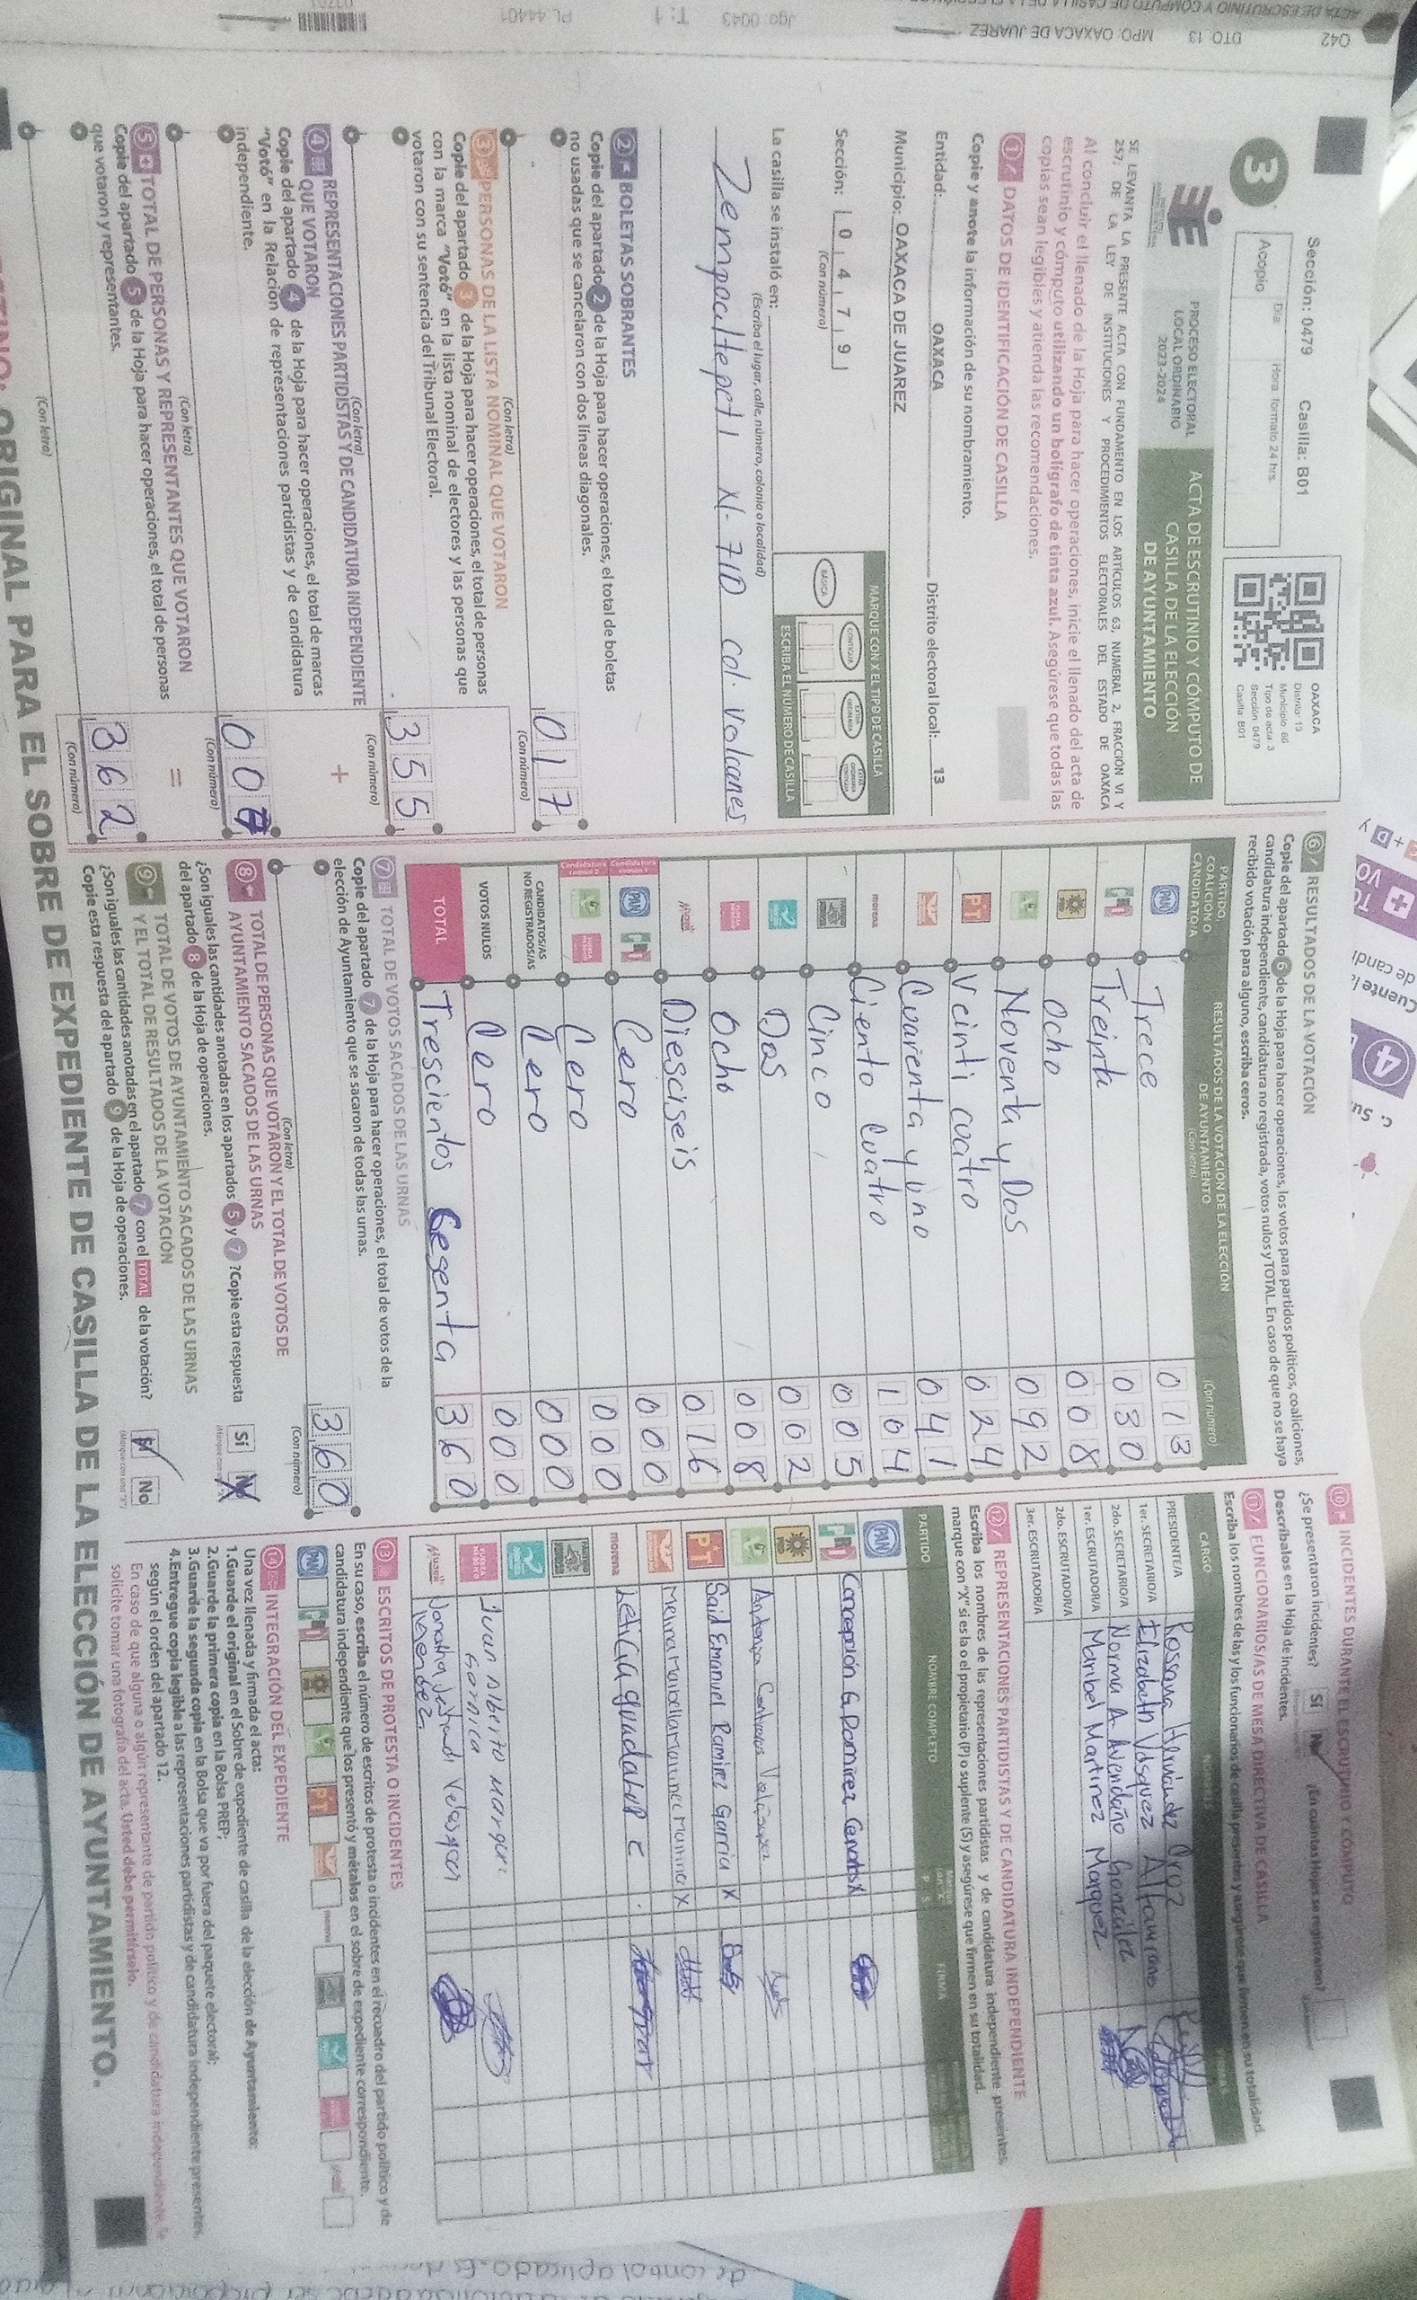 Sección: 0479 Casilla: B01
3
Acopio
Día
Hora formato 24 hrs.
OAXACA
Distrito: 13
Municipio: 66
Tipo de acta: 3
Sección: 0479
Casilla: B01
PROCESO ELECTORAL
LOCAL ORDINARIO
2023-2024
ACTA DE ESCRUTINIO Y CÓMPUTO DE
CASILLA DE LA ELECCIÓN
DE AYUNTAMIENTO
SE LEVANTA LA PRESENTE ACTA CON FUNDAMENTO EN LOS ARTÍCULOS 63, NUMERAL 2, FRACCIÓN VI Y
257, DE LA LEY DE INSTITUCIONES Y PROCEDIMIENTOS ELECTORALES DEL ESTADO DE OAXACA
Al concluir el llenado de la Hoja para hacer operaciones, inicie el llenado del acta de
escrutinio y cómputo utilizando un bolígrafo de tinta azul. Asegúrese que todas las
copias sean legibles y atienda las recomendaciones.
1 DATOS DE IDENTIFICACIÓN DE CASILLA
Copie y anote la información de su nombramiento.
Entidad: OAXACA Distrito electoral local: 13
Municipio: OAXACA DE JUAREZ
Sección: 0 4 7 9
(Con número)
MARQUE CON X EL TIPO DE CASILLA
BÁSICA
CONTIGUA
ESCRIBA EL NÚMERO DE CASILLA
La casilla se instaló en:
(Escriba el lugar, calle, número, colonia o localidad)
Zempoaltepetl N-710 col. volcanes
2 BOLETAS SOBRANTES
Copie del apartado 2 de la Hoja para hacer operaciones, el total de boletas
no usadas que se cancelaron con dos líneas diagonales.
017
(Con letra) (Con número)
3 PERSONAS DE LA LISTA NOMINAL QUE VOTARON
Copie del apartado 3 de la Hoja para hacer operaciones, el total de personas
con la marca "Votó" en la lista nominal de electores y las personas que
votaron con su sentencia del Tribunal Electoral.
355
(Con letra) (Con número)
4 REPRESENTACIONES PARTIDISTAS Y DE CANDIDATURA INDEPENDIENTE
QUE VOTARON
+
Copie del apartado 4 de la Hoja para hacer operaciones, el total de marcas
"Votó" en la Relación de representaciones partidistas y de candidatura
independiente.
007
(Con letra) (Con número)
5 TOTAL DE PERSONAS Y REPRESENTANTES QUE VOTARON
=
Copie del apartado 5 de la Hoja para hacer operaciones, el total de personas
que votaron y representantes.
362
(Con letra) (Con número)
6 RESULTADOS DE LA VOTACIÓN
Copie del apartado 6 de la Hoja para hacer operaciones, los votos para partidos políticos, coaliciones,
candidatura independiente, candidatura no registrada, votos nulos y TOTAL. En caso de que no se haya
recibido votación para alguno, escriba ceros.
PARTIDO, COALICIÓN O CANDIDATO/A
RESULTADOS DE LA VOTACIÓN DE LA ELECCIÓN
DE AYUNTAMIENTO
(Con letra) (Con número)
PAN Trece 013
Treinta 030
Ocho 008
Noventa y Dos 092
PT Veinti cuatro 024
Cuarenta y uno 041
morena Ciento Cuatro 104
Cinco 005
Dos 002
Ocho 008
Diesciseis 016
PAN Cero 000
Cero 000
CANDIDATOS/AS NO REGISTRADOS/AS Cero 000
VOTOS NULOS Cero 000
TOTAL Trescientos Sesenta 360
7 TOTAL DE VOTOS SACADOS DE LAS URNAS
Copie del apartado 7 de la Hoja para hacer operaciones, el total de votos de la
elección de Ayuntamiento que se sacaron de todas las urnas.
360
(Con letra) (Con número)
8 TOTAL DE PERSONAS QUE VOTARON Y EL TOTAL DE VOTOS DE
AYUNTAMIENTO SACADOS DE LAS URNAS
¿Son iguales las cantidades anotadas en los apartados 5 y 7 ? Copie esta respuesta
del apartado 8 de la Hoja de operaciones.
Sí No
9 TOTAL DE VOTOS DE AYUNTAMIENTO SACADOS DE LAS URNAS
Y EL TOTAL DE RESULTADOS DE LA VOTACIÓN
¿Son iguales las cantidades anotadas en el apartado 7 con el TOTAL de la votación?
Copie esta respuesta del apartado 9 de la Hoja de operaciones.
Sí No
10 INCIDENTES DURANTE EL ESCRUTINIO Y CÓMPUTO
¿Se presentaron incidentes? Sí No ¿En cuántas Hojas se registraron?
Descríbalos en la Hoja de incidentes.
11 FUNCIONARIOS/AS DE MESA DIRECTIVA DE CASILLA
Escriba los nombres de las y los funcionarios de casilla presentes y asegúrese que firmen en su totalidad.
CARGO
PRESIDENTE/A Rossana Hernández Cruz
1er. SECRETARIO/A Elizabeth Vásquez Altamirano
2do. SECRETARIO/A Norma A Avendaño González
1er. ESCRUTADOR/A Maribel Martinez Marquez
2do. ESCRUTADOR/A
3er. ESCRUTADOR/A
12 REPRESENTACIONES PARTIDISTAS Y DE CANDIDATURA INDEPENDIENTE
Escriba los nombres de las representaciones partidistas y de candidatura independiente presentes,
marque con "X" si es la o el propietario (P) o suplente (S) y asegúrese que firmen en su totalidad.
PARTIDO NOMBRE COMPLETO P S FIRMA
PAN
Concepción G. Domínguez X
Antonia
PT Said Emanuel Ramirez Garcia X
X
morena Leticia guadalupe
Juan Alberto
13 ESCRITOS DE PROTESTA O INCIDENTES
En su caso, escriba el número de escritos de protesta o incidentes en el recuadro del partido político y de
candidatura independiente que los presentó y métalos en el sobre de expediente correspondiente.
14 INTEGRACIÓN DEL EXPEDIENTE
Una vez llenada y firmada el acta:
1.Guarde el original en el Sobre de expediente de casilla de la elección de Ayuntamiento;
2.Guarde la primera copia en la Bolsa PREP;
3.Guarde la segunda copia en la Bolsa que va por fuera del paquete electoral;
4.Entregue copia legible a las representaciones partidistas y de candidatura independiente presentes,
según el orden del apartado 12.
En caso de que alguna o algún representante de partido político y de candidatura independiente, le
solicite tomar una fotografía del acta. Usted debe permitírselo.
ORIGINAL PARA EL SOBRE DE EXPEDIENTE DE CASILLA DE LA ELECCIÓN DE AYUNTAMIENTO.
Q42 DTO 13 MPO. OAXACA DE JUAREZ
Jgo: 0043 T: 1 PL 44401